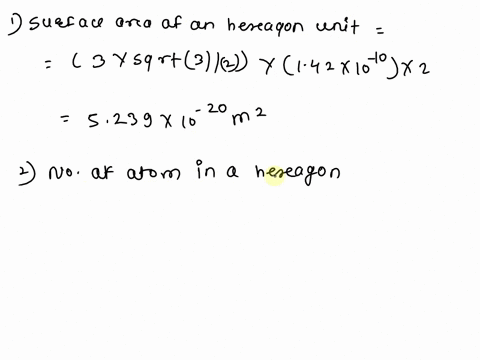 1) Surface area of an hexagon unit =
= (3 × sqrt(3)/(2)) × (1.42 × 10^-10) × 2
= 5.239 × 10^-20 m^2
2) No. of atom in a hexagon